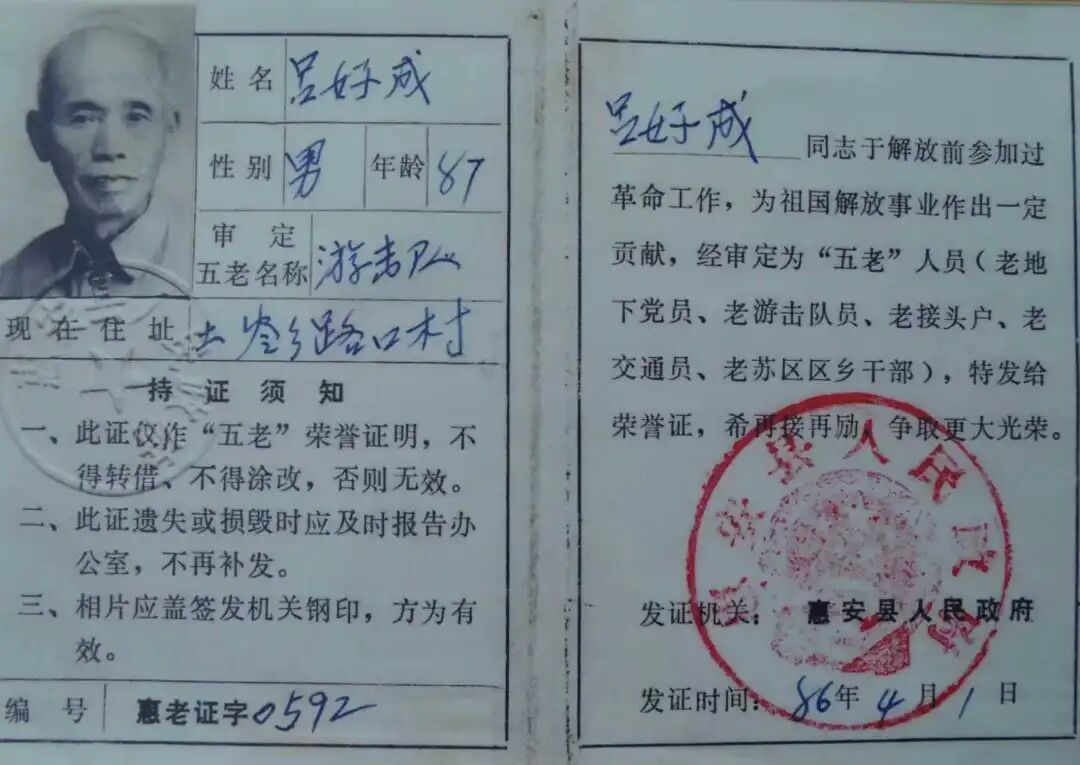 姓名 吕好成
性别 男 年龄 87
审定
五老名称 游击队
现在住址 土岺乡路口村
持证须知
一、此证仅作“五老”荣誉证明,不
得转借、不得涂改,否则无效。
二、此证遗失或损毁时应及时报告办
公室,不再补发。
三、相片应盖签发机关钢印,方为有
效。
编号 惠老证字0592
吕好成 同志于解放前参加过
革命工作,为祖国解放事业作出一定
贡献,经审定为“五老”人员(老地
下党员、老游击队员、老接头户、老
交通员、老苏区区乡干部),特发给
荣誉证,希再接再励,争取更大光荣。
惠安县人民政府
发证机关:惠安县人民政府
发证时间:86年4月1日